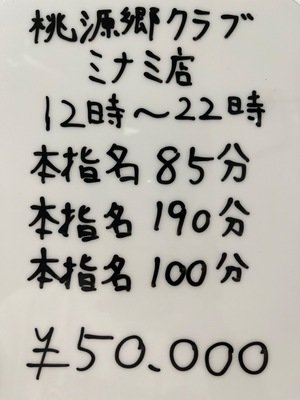 桃源郷クラブ
ミナミ店
12時～22時
本指名 85分
本指名 190分
本指名 100分
¥50.000